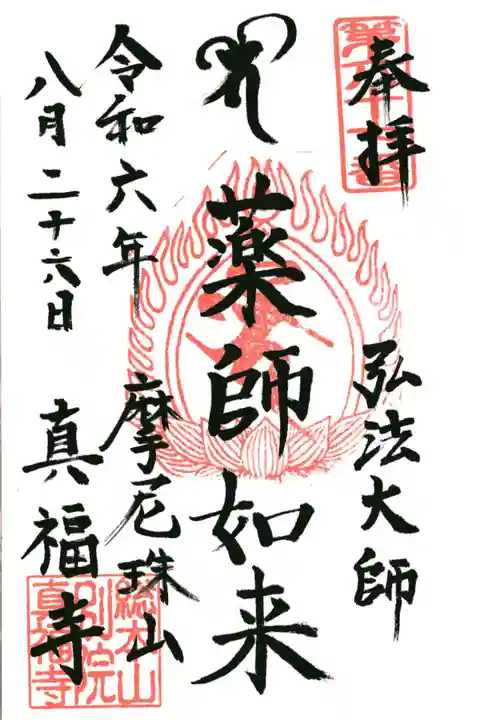 奉拝
弘法大師
薬師如来
摩尼珠山
令和六年
八月二十六日
真福寺
総本山
別院
真福寺